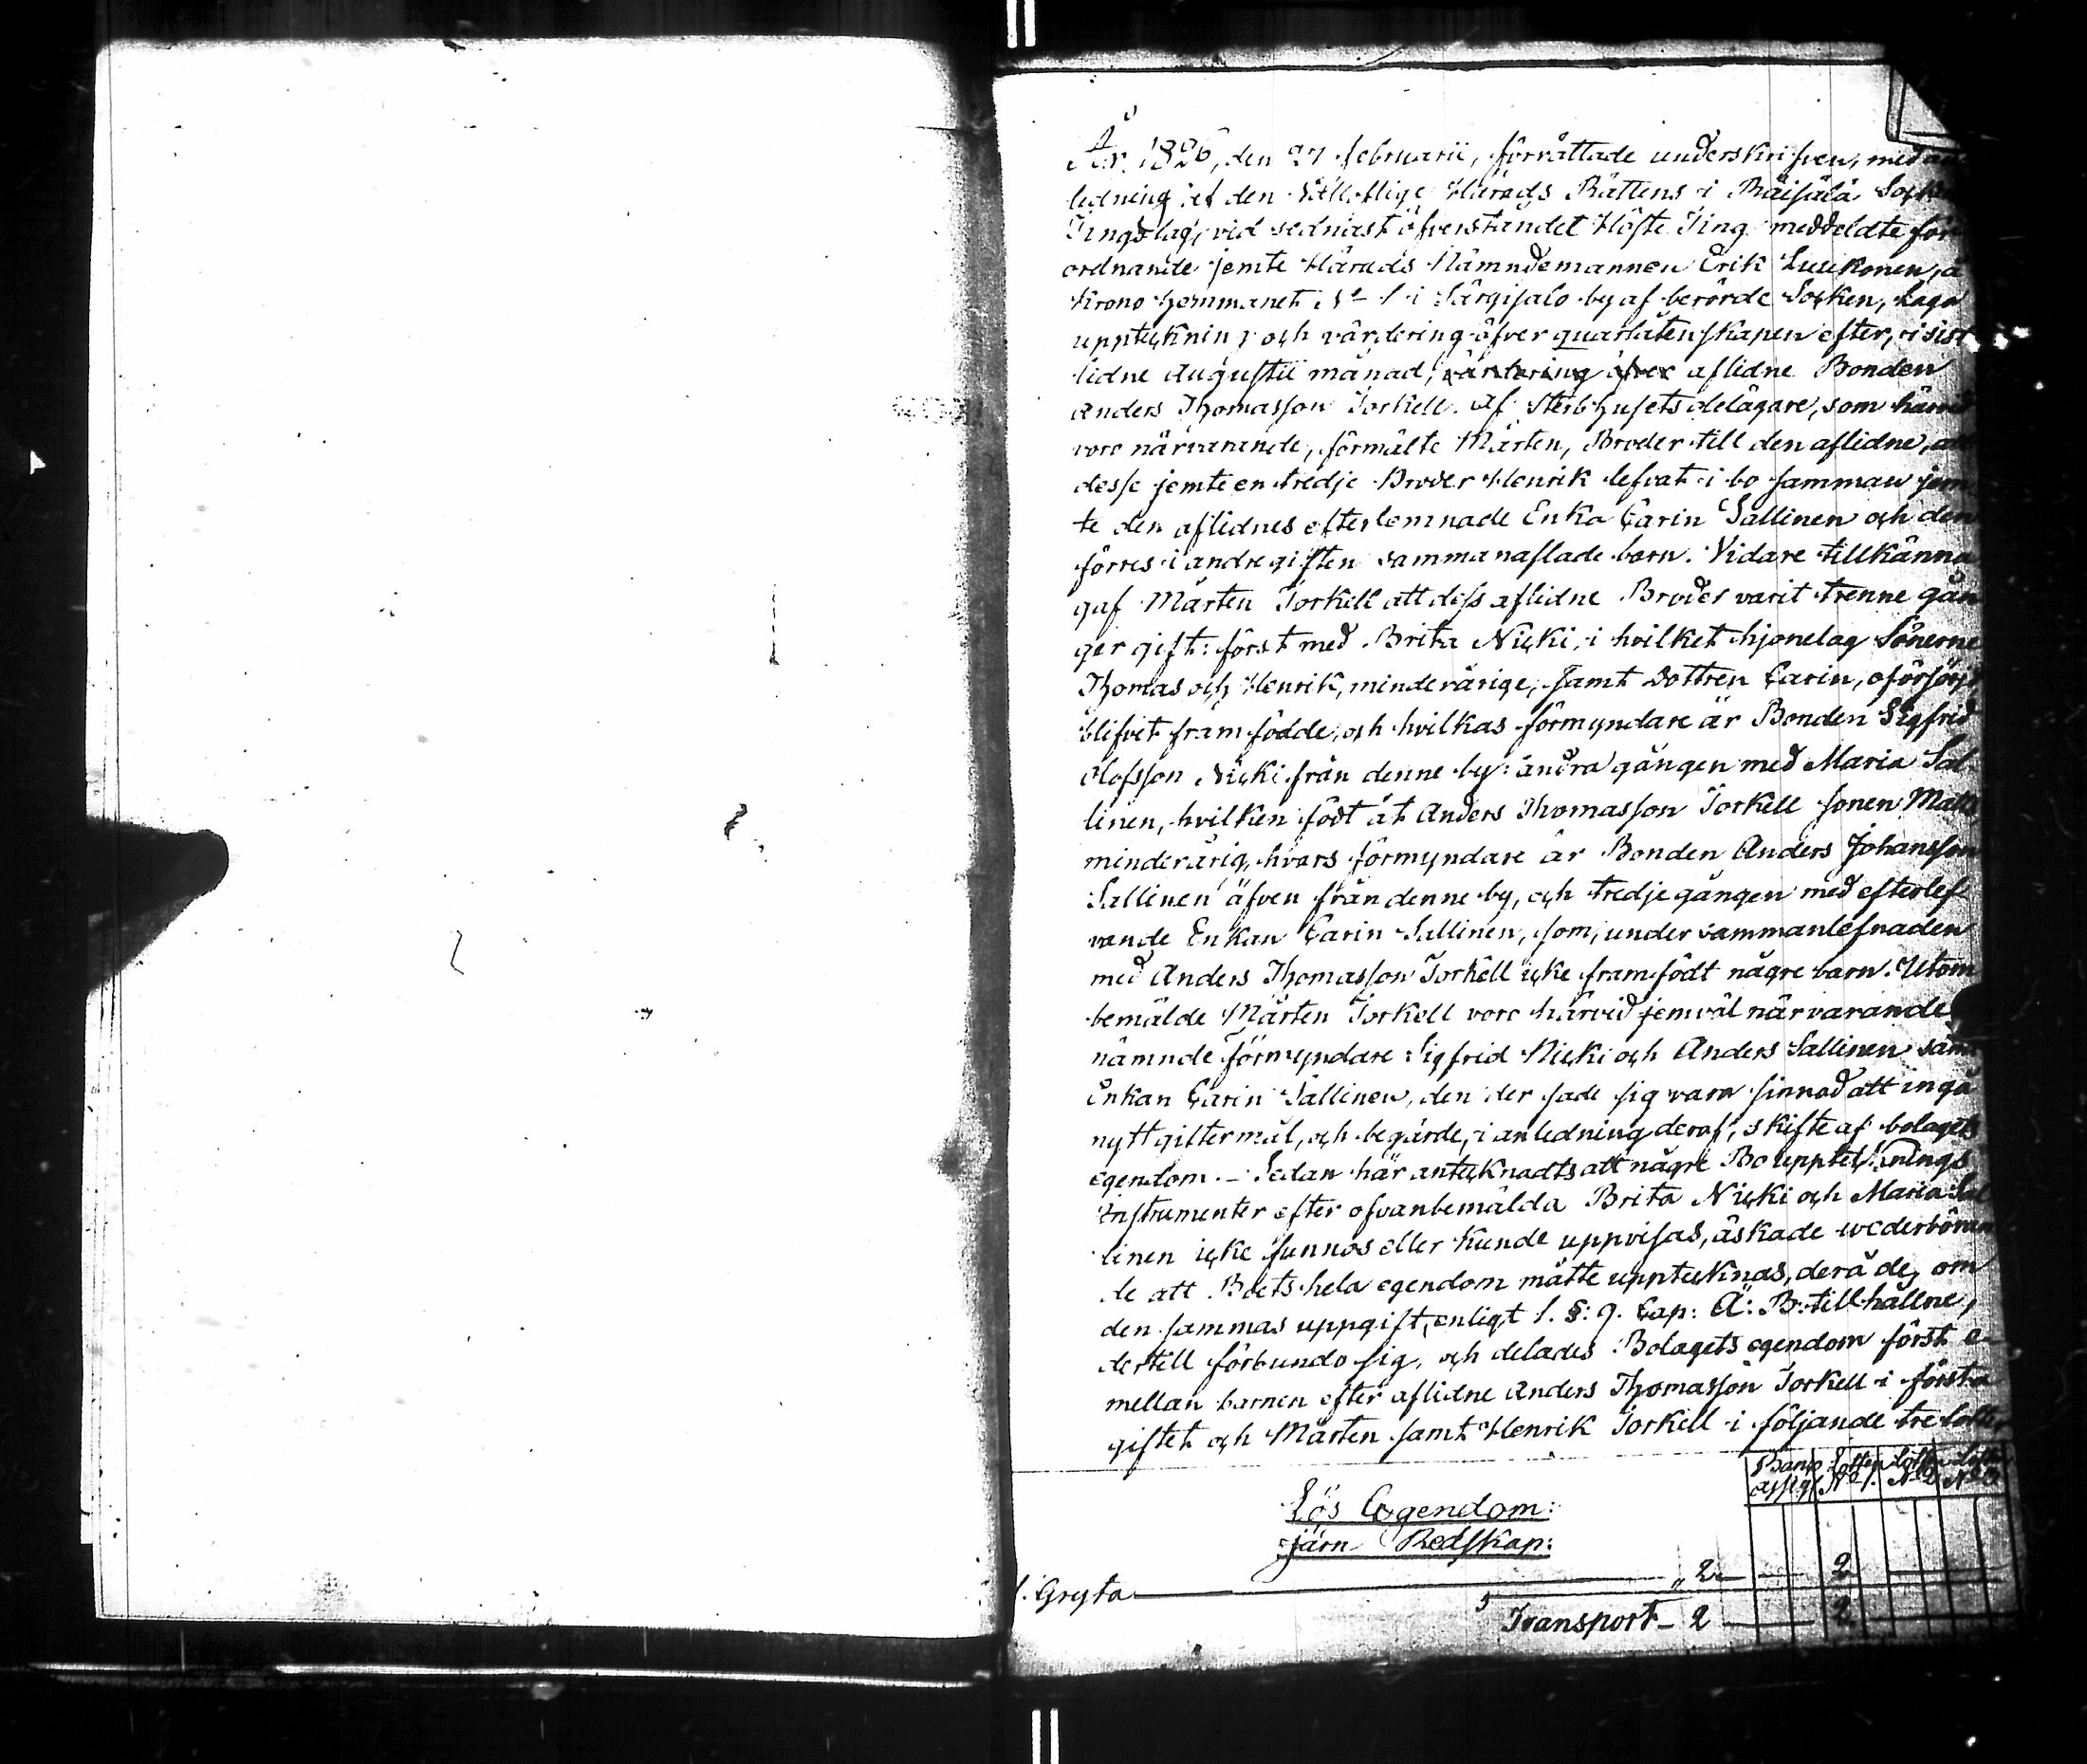 År 1826, den 27 februarii, förrättade underskrifven, med an
ledning af den Vällofliga Härads Rättens i Räisälä Socken
Tingslag, vid sednast öfverståndet Höste Ting meddeldte för
ordnande jemte Härads Nämndemannen Erik Luukonen, å
Krono hemmanet No 1 i Särgisalo by af berörde Socken, Laga
upptekning och värdering öfver quarlåtenskapen efter, i sist
lidne Augustii månad, värdering öfver aflidne Bonden
Anders Thomasson Torkell. Af Sterbhusets delägare, som härvid
voro närvarande, förmälte Mårten, Broder till den aflidne, att
desse jemte en tredje Broder Henrik lefvat i bo samman jem
te den aflidnes efterlemnade Enka Carin Sallinen och den
förres i andre giften sammanaflade barn. Vidare tillkänna
gaf Mårten Torkell att dess aflidne Broder varit trenne gån
ger gift: först med Brita Nicki, i hvilket hjonelag Sönerne
Thomas och Henrik, minderårige, samt dottren Carin, oförsörjd,
blifvit framfödde, och hvilkas förmyndare är Bonden Sigfrid
Olofsson Nicki från denne by: andra gången med Maria Sal
linen, hvilken födt åt Anders Thomasson Torkell sonen Matts
minderårig, hvars förmyndare är Bonden Anders Johansson
Sallinen äfven från denne by, och tredje gången med efterlef
vande Enkan Carin Sallinen, som, under sammanlefnaden
med Anders Thomasson Torkell icke framfödt någre barn. Utom
bemälde Mårten Torkell voro härvid jemväl närvarande
nämnde förmyndare Sigfrid Nicki och Anders Sallinen samt
Enkan Carin Sallinen, den der sade sig vara sinnad att ingå
nytt giftermål, och begärde, i anledning deraf, skifte af bolagets
egendom. – Sedan här antecknadts att någre Boupptecknings
Instrumenter efter ofvanbemälda Brita Nicki och Maria Sal
linen icke funnos eller kunde uppvisas, äskade wederböran
de att Boets hela egendom måtte uppteknas, derå de, om
den sammas uppgift, enligt 1. §: 9. Cap: Ä: B: tillhållne,
dertill förbundo sig, och delades Bolagets egendom först e-
mellan barnen efter aflidne Anders Thomasson Torkell i första
giftet och Mårten samt Henrik Torkell i följande tre lotter
Banco assig. Lotten No 1. Lotten No 2 Lotten No 3
Lös Egendom:
Järn Redskap:
1. Gryta 2 2
Transport – 2 2